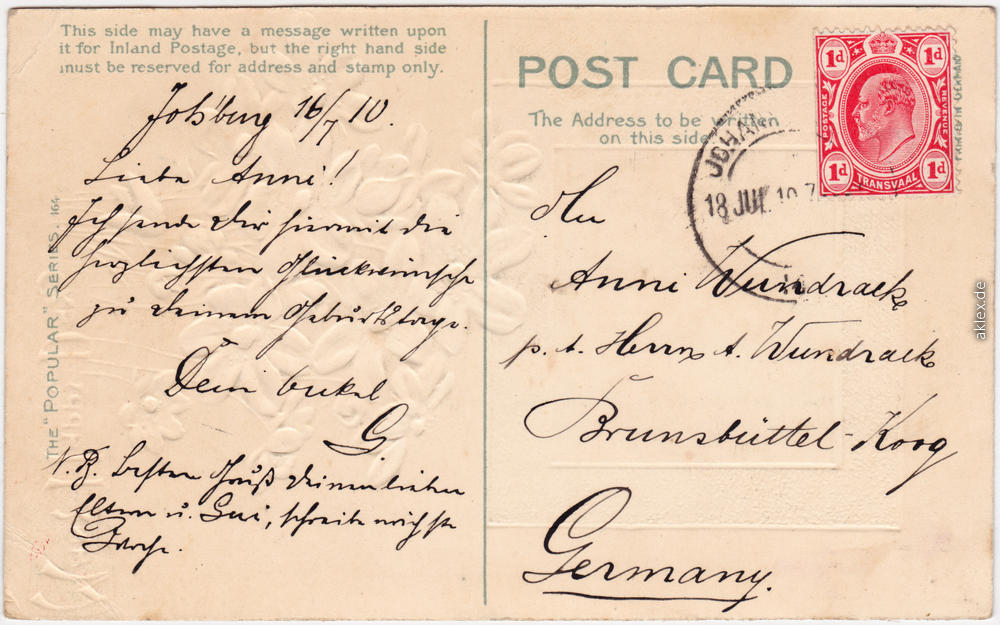 This side may have a message written upon
it for Inland Postage, but the right hand side
must be reserved for address and stamp only.
Johsburg 16/7 10.
Liebe Anni!
Ich sende Dir hiermit die
herzlichsten Glückwünsche
zu Deinem Geburtstage.
Dein Onkel
G
N.B. besten Gruß Deinen lieben
Eltern u. schreibe nächste
Woche.
THE "POPULAR" SERIES. 164
POST CARD
The Address to be written
on this side
JOHAN
18 JUL 10
1d 1d
POSTAGE REVENUE
1d 1d
TRANSVAAL
An
Anni Wundrack
p. A. Herrn A. Wundrack
Brunsbüttel-Koog
Germany.
aklex.de